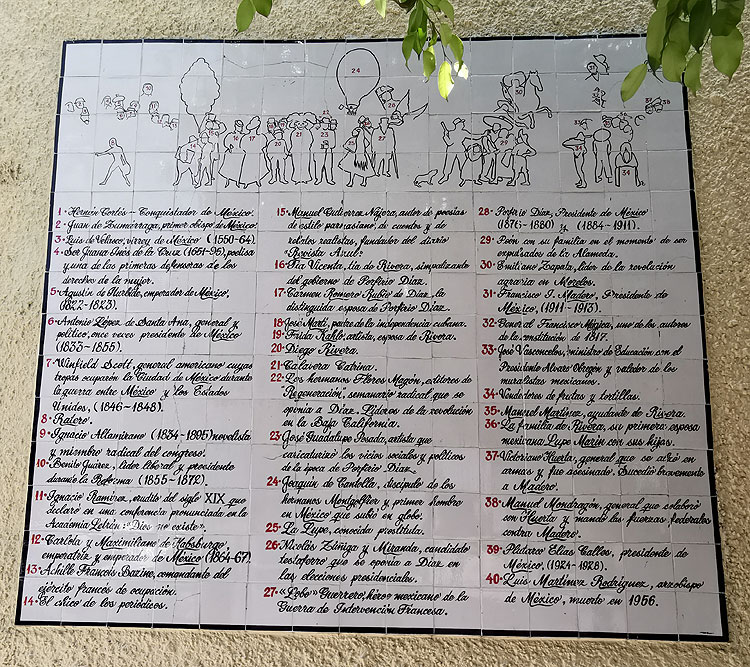 1· Hernán Cortés - Conquistador de México.
2· Juan de Zumárraga, primer obispo de México.
3· Luis de Velasco, virrey de México (1550-64)
4· Sor Juana Inés de la Cruz (1651-95), poetisa
y una de las primeras defensoras de los
derechos de la mujer.
5· Agustín de Iturbide, emperador de México,
1822-1823).
6· Antonio López de Santa Ana, general y
político, once veces presidente de México
(1833-1855).
7· Winfield Scott, general americano cuyas
tropas ocuparón la Ciudad de México durante
la guerra entre México y los Estados
Unidos, (1846-1848).
8· Ratero.
9· Ignacio Altamirano (1834-1895) novelista
y miembro radical del congreso.
10· Benito Juárez, líder liberal y presidente
durante la Reforma (1855-1872).
11· Ignacio Ramírez, erudito del siglo XIX que
declaró en una conferencia pronunciada en la
Academia Letrán: "Dios no existe".
12· Carlota y Maximiliano de Habsburgo,
emperatriz y emperador de México (1864-67)
13· Achille François Bazine, comandante del
ejército francés de ocupación.
14· El chico de los periódicos.
15· Manuel Gutiérrez Nájera, autor de poesías
de estilo parnasiano, de cuentos y de
relatos realistas, fundador del diario
"Revista Azul".
16· Tía Vicenta, tía de Rivera, simpatizante
del gobierno de Porfirio Díaz.
17· Carmen Romero Rubio de Díaz, la
distinguida esposa de Porfirio Díaz.
18· José Martí, patre de la independencia cubana.
19· Frida Kahlo, artista, esposa de Rivera.
20· Diego Rivera.
21· Calavera Catrina.
22· Los hermanos Flores Magón, editores de
"Regeneración", semanario radical que se
oponía a Díaz. Líderes de la revolución
en la Baja California.
23· José Guadalupe Posada, artista que
caricaturizó los vicios sociales y políticos
de la época de Porfirio Díaz.
24· Joaquín de Cantolla, discípulo de los
hermanos Montgolfier y primer hombre
en México que subió en globo.
25· La Lupe, conocida prostituta.
26· Nicolás Zúñiga y Miranda, candidato
testaferro que se oponía a Díaz en
las elecciones presidenciales.
27· «Lobo» Guerrero, héroe mexicano de la
Guerra de Intervención Francesa.
28· Porfirio Díaz, Presidente de México
(1876-1880) y (1884-1911).
29· Peón con su familia en el momento de ser
expulsados de la Alameda.
30· Emiliano Zapata, líder de la revolución
agraria en Morelos.
31· Francisco I. Madero, Presidente de
México, (1911-1913).
32· General Francisco Mújica, uno de los autores
de la constitución de 1817.
33· José Vasconcelos, ministro de Educación con el
Presidente Alvaro Obregón y valedor de los
muralistas mexicanos.
34· Vendedores de frutas y tortillas.
35· Manuel Martínez, ayudante de Rivera.
36· La familia de Rivera, su primera esposa
mexicana Lupe Marín con sus hijas.
37· Victoriano Huerta, general que se alzó en
armas y fue asesinado. Sucedió brevemente
a Madero.
38· Manuel Mondragón, general que colaboró
con Huerta y mandó las fuerzas federales
contra Madero.
39· Plutarco Elías Calles, presidente de
México. (1924-1928).
40· Luis Martínez Rodríguez, arzobispo
de México, muerto en 1956.